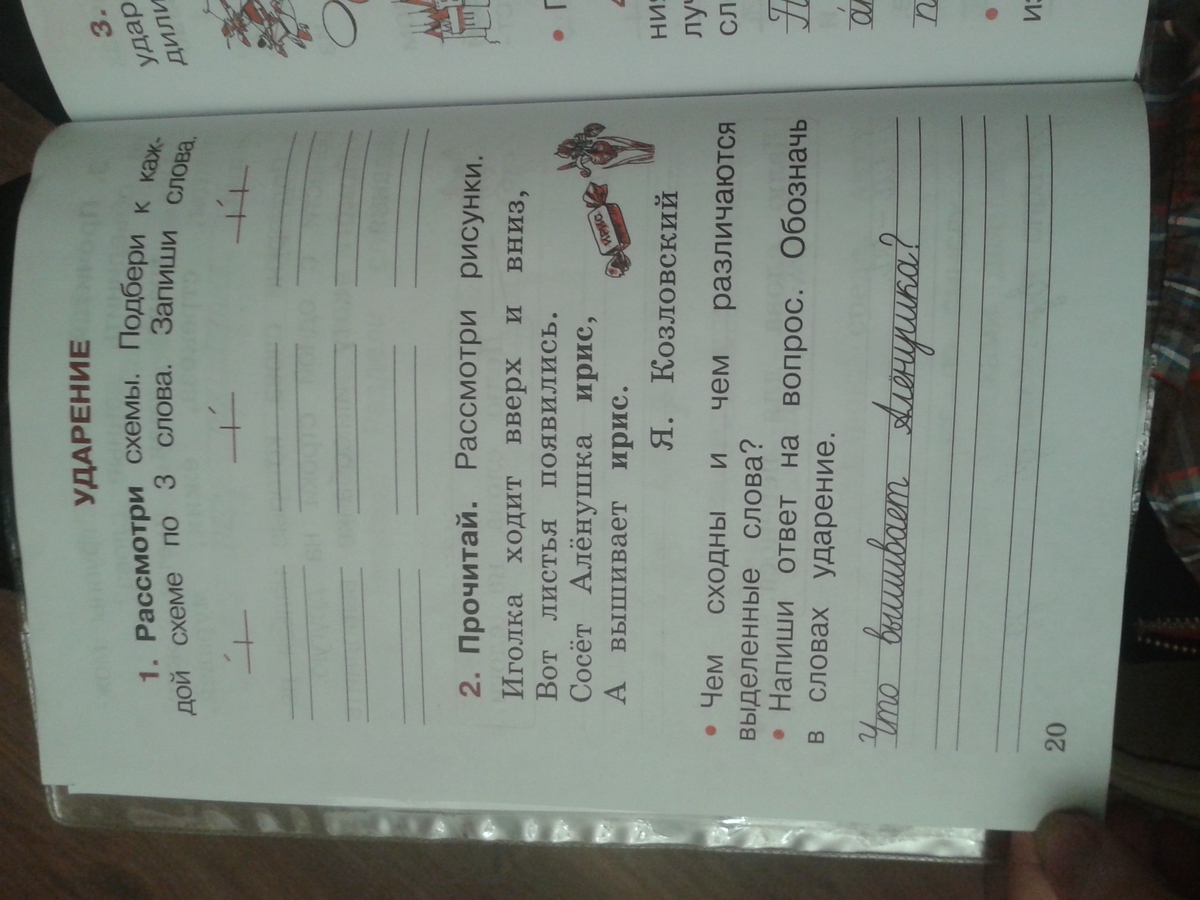 УДАРЕНИЕ
1. Рассмотри схемы. Подбери к каж-
дой схеме по 3 слова. Запиши слова.
2. Прочитай. Рассмотри рисунки.
Иголка ходит вверх и вниз,
Вот листья появились.
Сосёт Алёнушка ирис,
А вышивает ирис.
ИРИС
Я. Козловский
• Чем сходны и чем различаются
выделенные слова?
• Напиши ответ на вопрос. Обозначь
в словах ударение.
Что вышивает Аленушка?
20
3.
удар
дили
• П
4
ния
луч
сл
• 
из